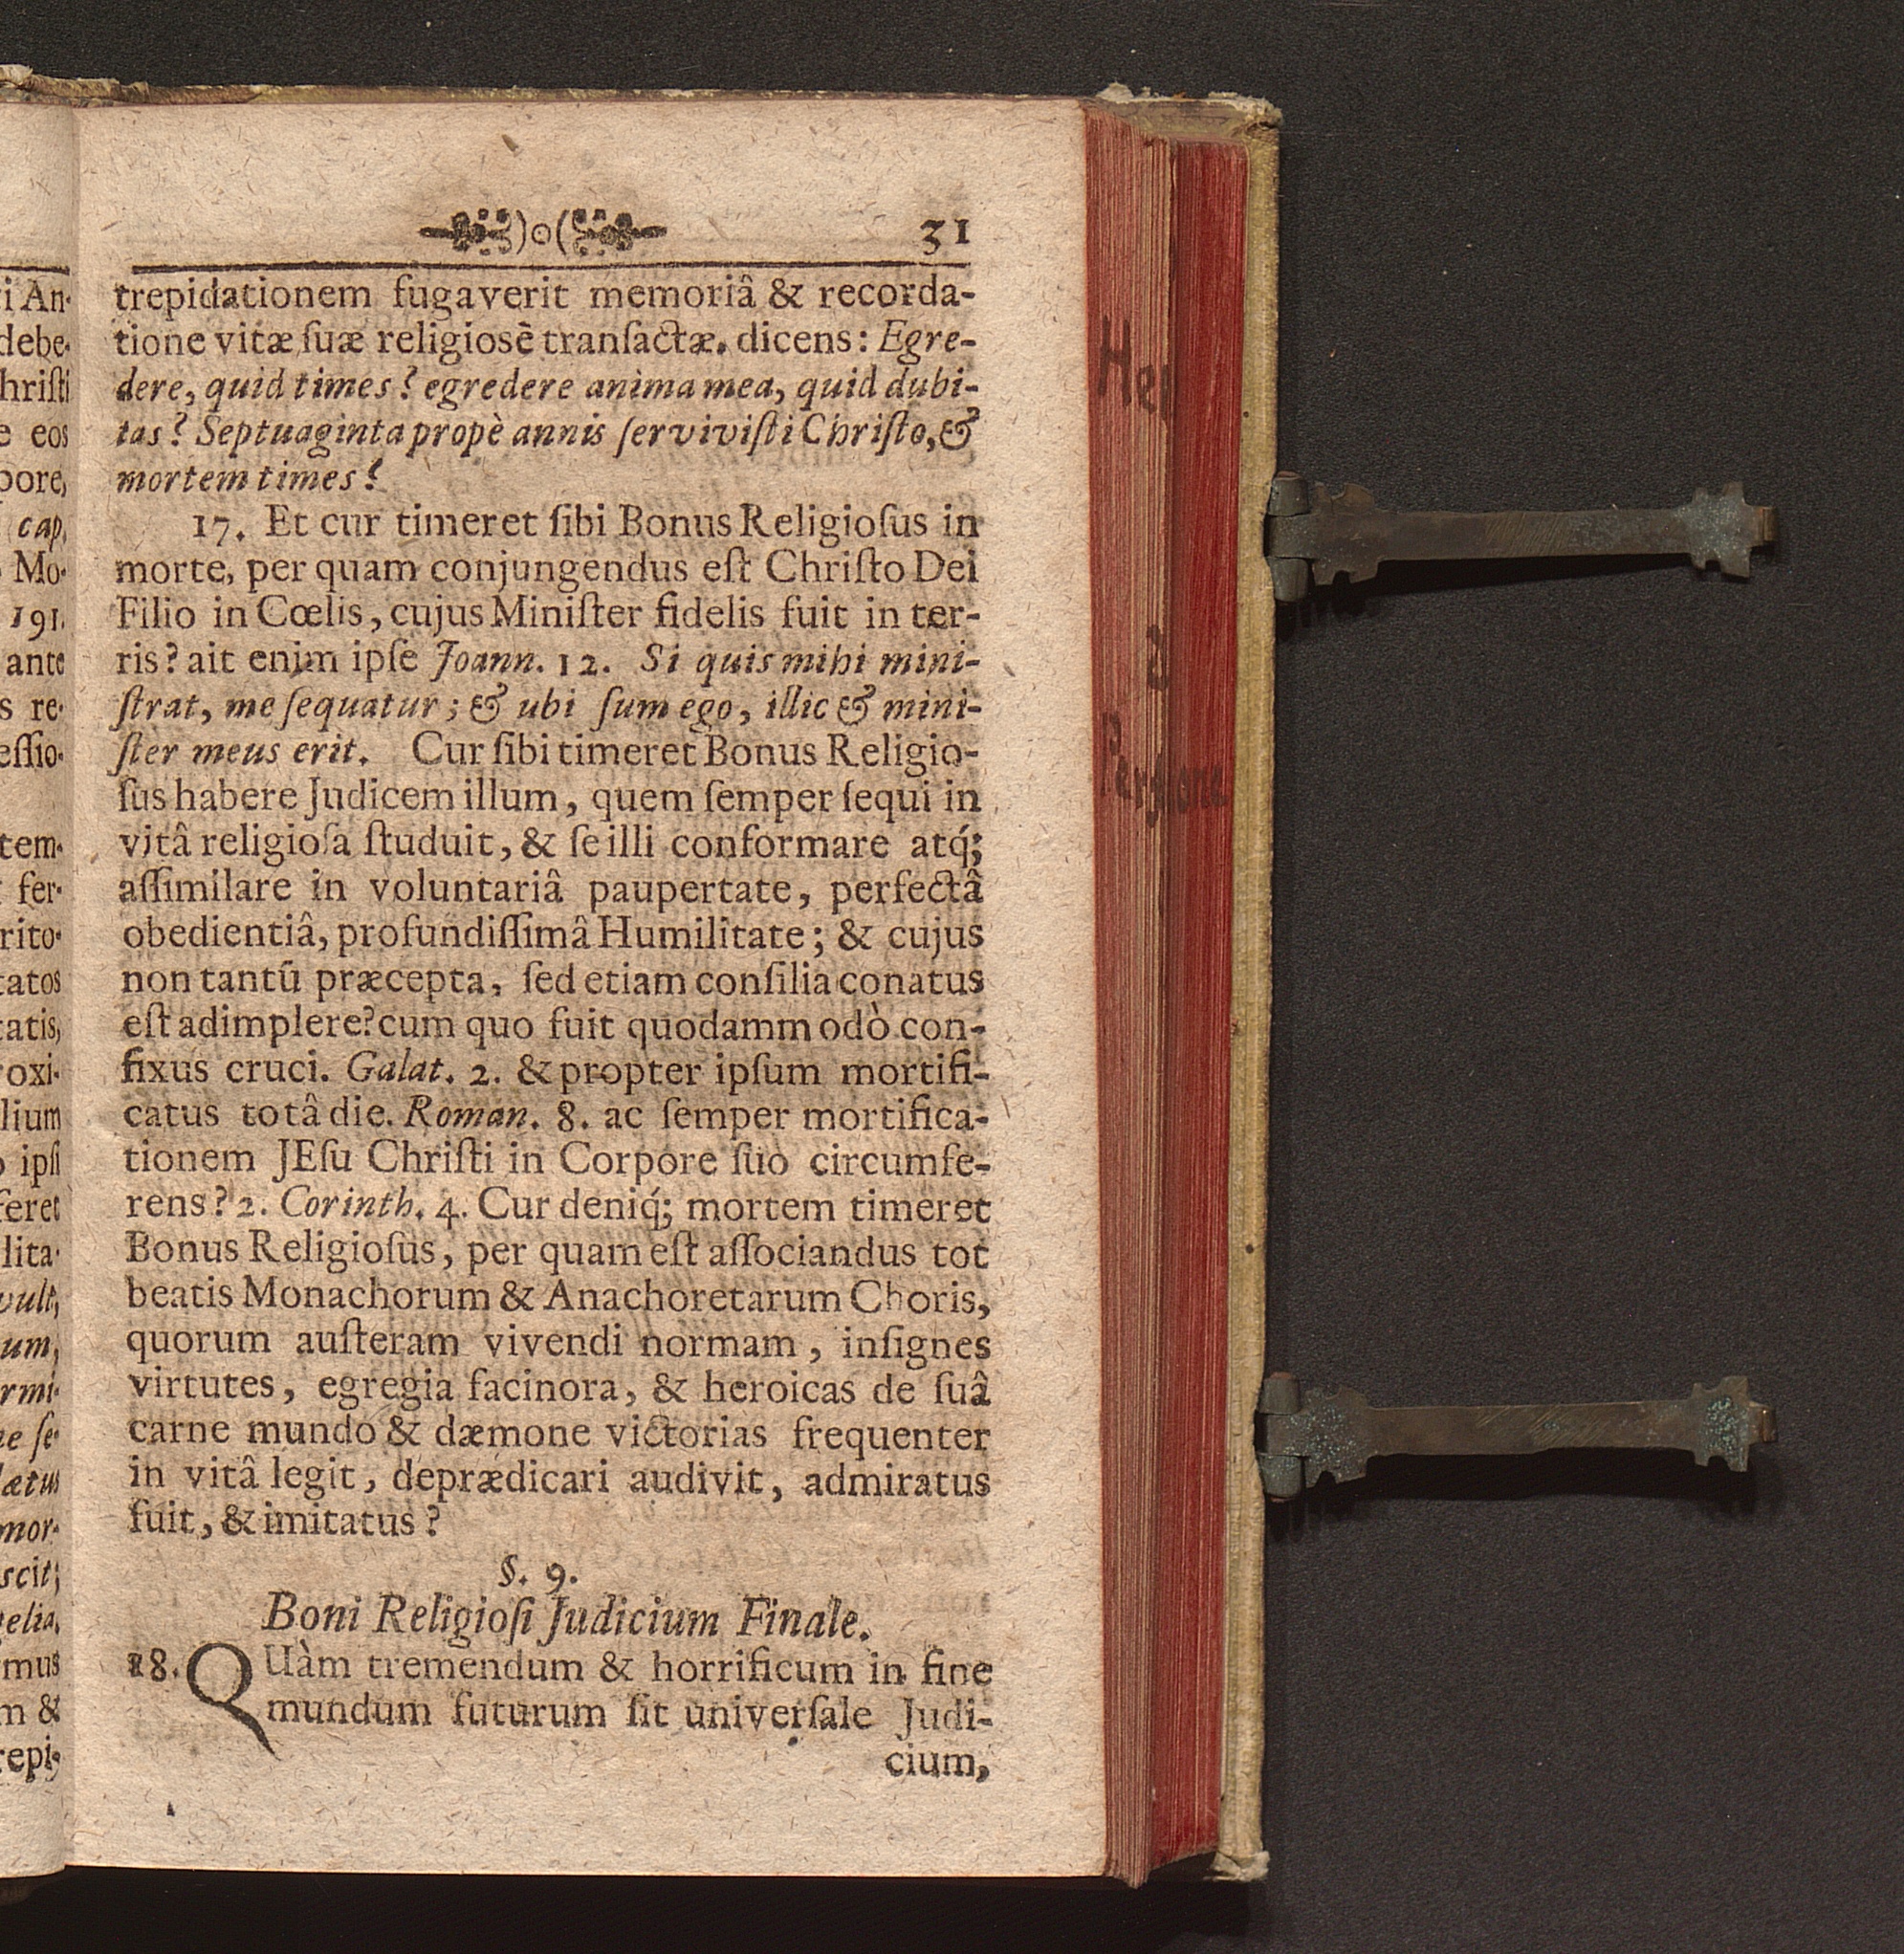 31
trepidationem fugaverit memoriâ & recorda-
tione vitæ ſuæ religiosè tranſactæ. dicens: Egre-
dere, quid times? egredere anima mea, quid dubi-
tas? Septuaginta propè annis ſerviviſti Chriſto, &
mortem times?
17. Et cur timeret ſibi Bonus Religioſus in
morte, per quam conjungendus eſt Chriſto Dei
Filio in Cœlis, cujus Miniſter fidelis fuit in ter-
ris? ait enim ipſe Joann. 12. Si quis mihi mini-
ſtrat, me ſequatur; & ubi ſum ego, illic & mini-
ſter meus erit. Cur ſibi timeret Bonus Religio-
ſus habere Judicem illum, quem ſemper ſequi in
vitâ religioſa ſtuduit, & ſe illi conformare atq́;
aſſimilare in voluntariâ paupertate, perfectâ
obedientiâ, profundiſſimâ Humilitate; & cujus
non tantū præcepta, ſed etiam conſilia conatus
eſt adimplere? cum quo fuit quodammodò con-
fixus cruci. Galat. 2. & propter ipſum mortifi-
catus totâ die. Roman. 8. ac ſemper mortifica-
tionem JEſu Chriſti in Corpore ſuo circumfe-
rens? 2. Corinth. 4. Cur deniq́; mortem timeret
Bonus Religioſus, per quam eſt aſſociandus tot
beatis Monachorum & Anachoretarum Choris,
quorum auſteram vivendi normam, inſignes
virtutes, egregia facinora, & heroicas de ſuâ
carne mundo & dæmone victorias frequenter
in vitâ legit, deprædicari audivit, admiratus
fuit, & imitatus?
§. 9.
Boni Religioſi Judicium Finale.
18. QUàm tremendum & horrificum in fine
mundum futurum ſit univerſale Judi-
cium,
i An-
debe-
hriſti
e eos
pore,
cap,
Mo-
191.
ante
s re-
eſſio-
tem-
fer-
rito-
tatos
tatis,
oxi-
lium
ipſi
feret
lita-
vult,
um,
rmi-
ne ſe-
lætus
mor-
scit;
gelia,
mus
m &
repi-